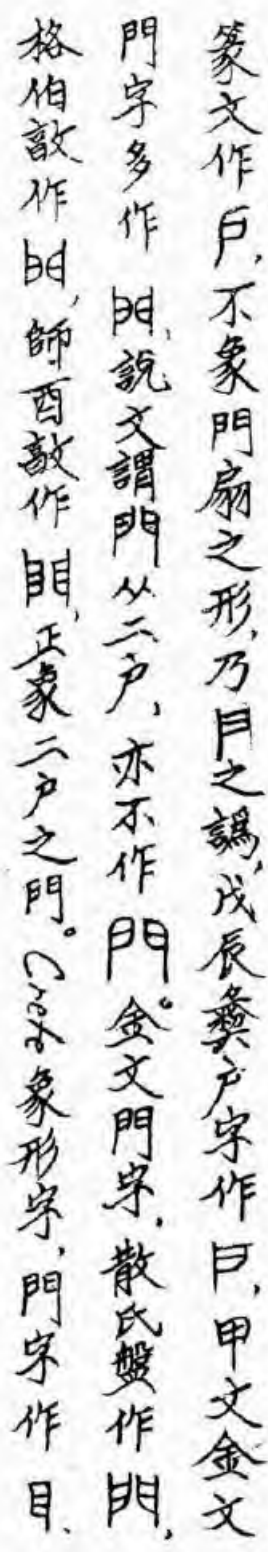 篆文作戶,不象門扇之形,乃日之譌,戊辰彝戶字作日,甲文金文
門字多作門,說文謂門从二戶,亦不作門。金文門字,散氏盤作門,
格伯敦作門,師酉敦作門,正象二戶之門。Crete象形字,門字作目、